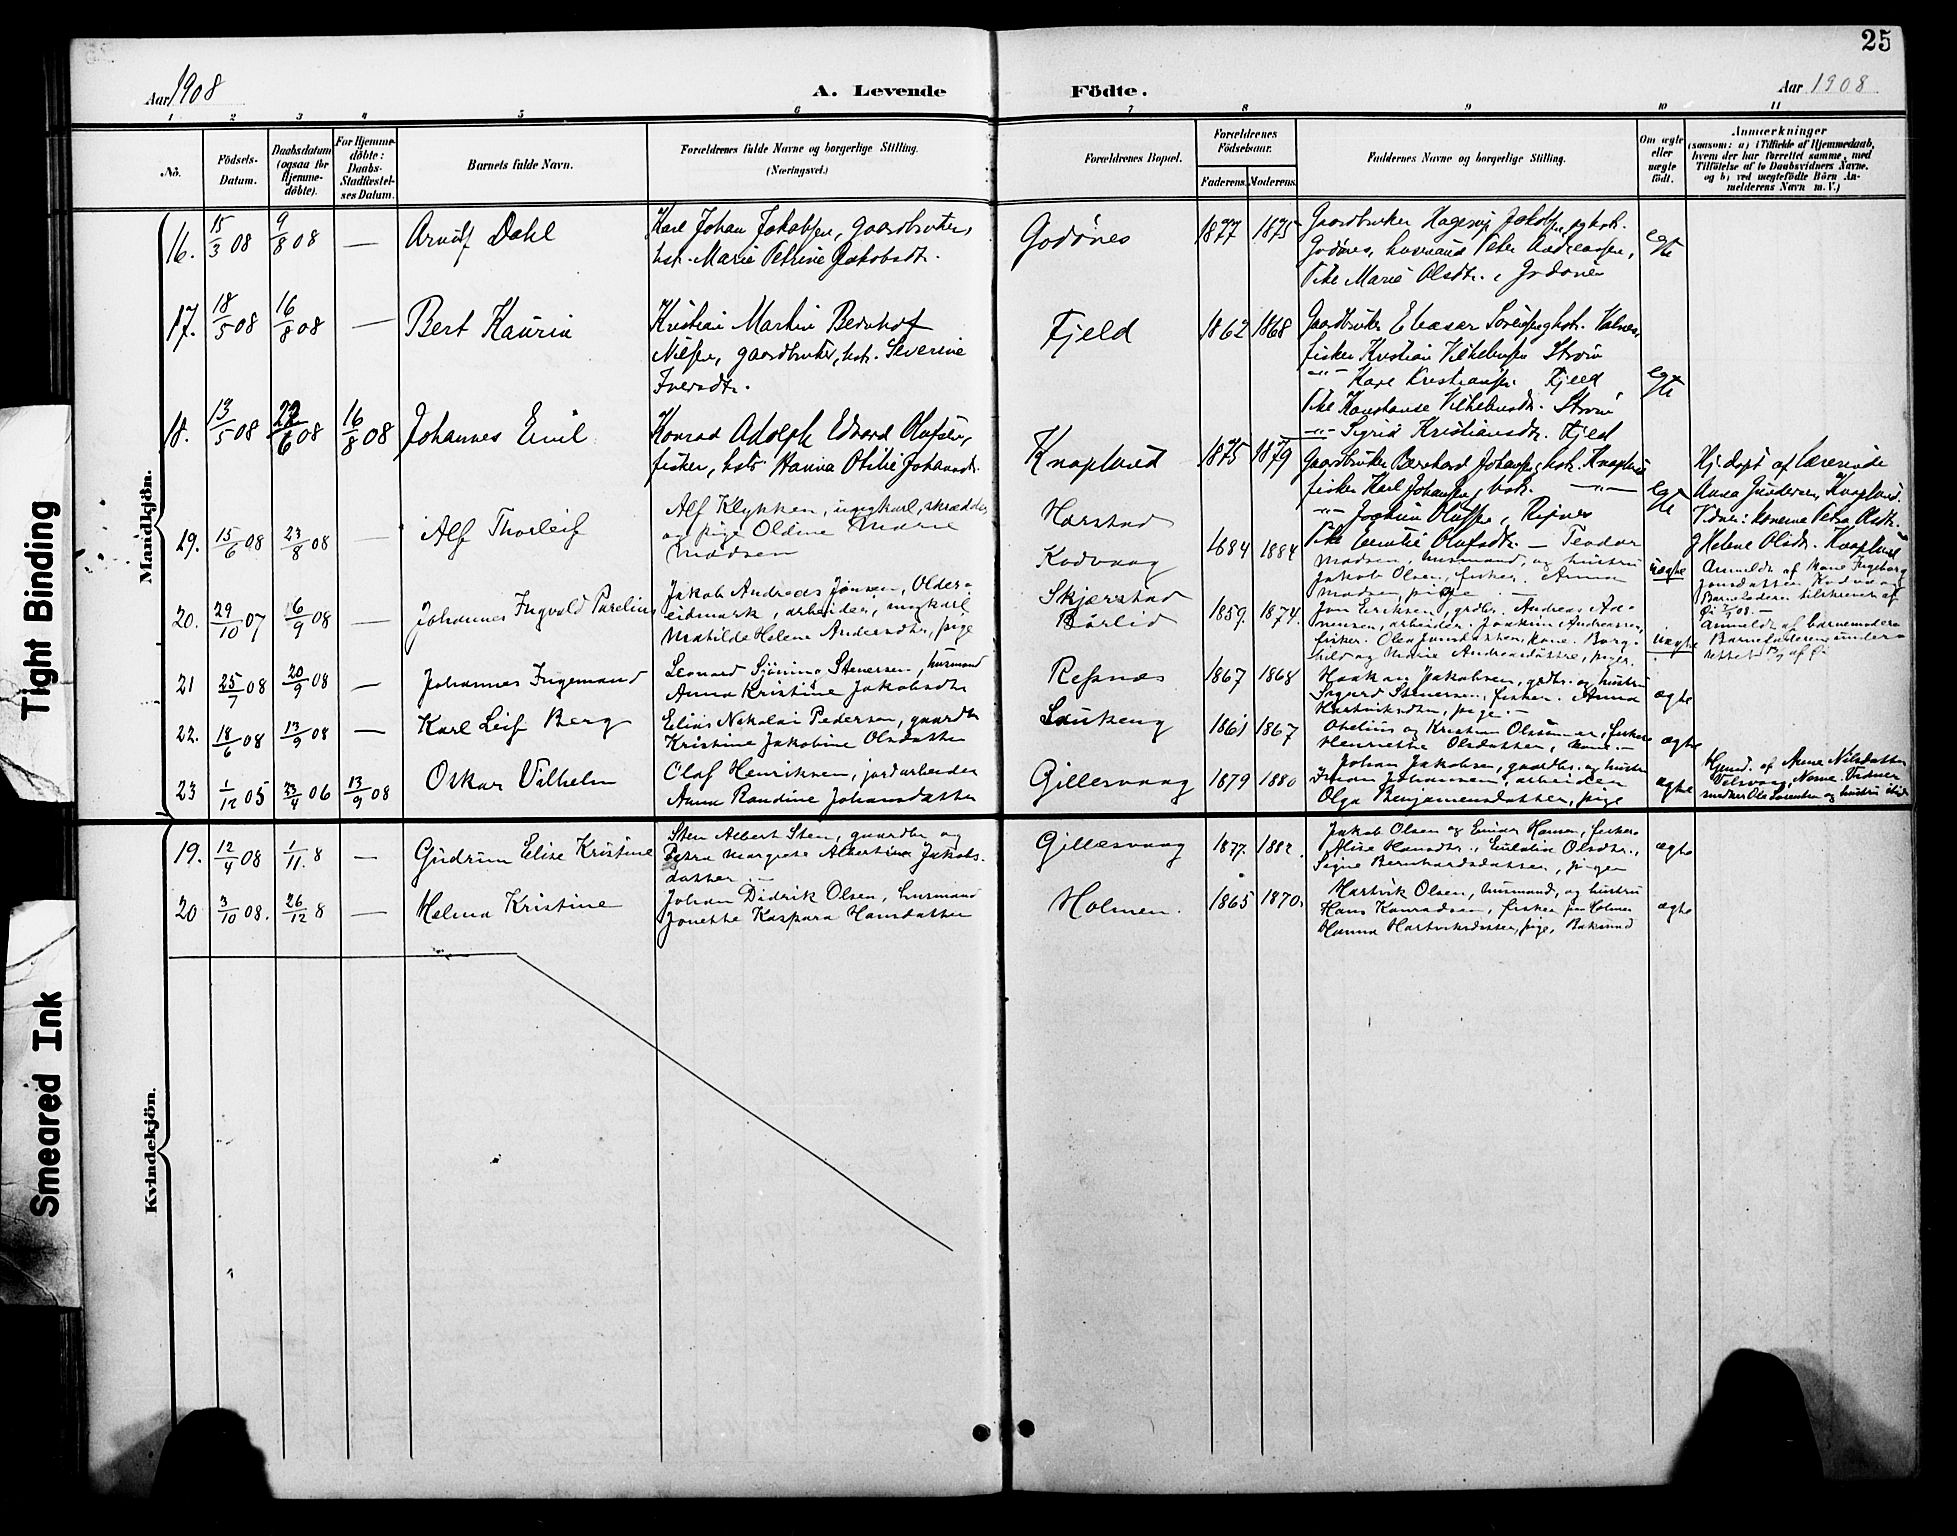 25
Aar 1908
A. Levende Födte.
Aar 1908
1 2 3 4 5 6 7 8 9 10 11
No.
Födsels-
Datum.
Daabsdatum
(ogsaa for
Hjemme-
döbte).
For Hjemme-
döbte:
Daabs-
Stadfæstel-
ses Datum.
Barnets fulde Navn.
Forældrenes fulde Navne og borgerlige Stilling.
(Næringsvei.)
Forældrenes Bopæl.
Forældrenes
Födselsaar.
Faderens. Moderens.
Faddernes Navne og borgerlige Stilling.
Om ægte
eller
uægte
födt.
Anmærkninger
(saasom: a) i Tilfælde af Hjemmedaab,
hvem der har forrettet samme, med
Tilföielse af to Daabsvidners Navne.
og b) ved uægtefödte Börn An-
melderens Navn m. V.)
Mandkjön.
16. 15/3 08 9/8 08 — Arnulf Dahl
Karl Johan Jakobsen, gaardbruker,
hst. Marie Petrine Jakobsdt.
Godönes 1877 1875
Gaardbruker Hagerup Jakobsen og hst.
Godönes, husmand Peter Andreassen,
Pike Marie Olsdtr., Godönes
egte
17. 18/5 08 16/8 08 — Bert Kaurin
Kristian Martin Bernhof
Nilsen, gaardbruker, hst. Severine
Iversdtr.
Fjeld 1862 1868
Gaardbruker Eleasar Sörensen og hst. Valnes,
fisker Kristian Vilhelmsen Ström
-"- Karl Kristiansen Fjeld
Pike Konstanse Vilhelmsdt. Ström
-"- Sigrid Kristiansdt. Fjeld
egte
18. 13/5 08 22/6 08 16/8 08 Johannes Emil
Konrad Adolph Edvard Olufsen,
fisker, hst. Hanna Otilie Johansdt.
Knaplund 1875 1879
Gaardbruker Bernhard Johansen og hst. Knaplund
fisker Karl Johansen og hst. -"-
-"- Joakim Olufsen, Rejnes
Pike Emilie Olufsdt. —
egte
Hj. döpt af lærerinde
Anna Gundersen, Knaplund.
Vidner: konerne Petra Olsdt.
og Helene Olsdt. Knaplund
19. 15/6 08 23/8 08 — Alf Thorleif
Alf Klykken, ungkarl, skrædder,
og pige Oldine Marie
Madsen
Harstad
Kodvaag
1884 1884
Teodor
Madsen, husmand, og hustru
Jakob Olsen, fisker. Anna
Madsen, pige —
uægte
Anmeldt af kone Ingeborg
Jonsdatter Kodvaag
Barnefaderen tilskreven af
20. 29/10 07 6/9 08 — Johannes Ingvald Parelius
Jakob Andreas Jonsen, Older-
eidmark, arbeider, ungkarl
Matilde Helene Andersdtr, pige
Skjerstad
Börlid
1859. 1874.
Jon Eriksen, grdbr. Andreas
arbeider. Joakim Andreassen,
fisker. Olea Jonsdatter, kone. Borg-
hild og Marie Andreasdatter, piger.
uægte
Anmeldt af barnemoderen
Barnefaderen under-
rettet
21 25/7 08 20/9 08 — Johannes Ingemand
Leonard Sjöning Stenersen, husmand
Anna Kristine Jakobsdtr
Refsnes 1867 1868
Haakon Jakobsen, grdbr. og hustru
Sigurd Stenersen, fisker. Anna
Hartviksdtr, pige —
ægte
22. 18/6 08 13/9 08 — Karl Leif Berg
Elias Nikolai Pedersen, gaardbr
Kristine Jakobine Olsdatter
Laukeng 1861 1867
Otelius og Kristian Olsönner, fiskere
Henriette Olsdatter, kone. —
ægte
23 1/12 05 23/4 06 13/9 08 Oskar Vilhelm
Olaf Henriksen, jordarbeider
Anna Randine Johansdatter
Gillesvaag 1879 1880
Johan Jakobsen, gaardbr. og hustru
Johan Johansen, arbeider
Olga Benjaminsdatter, pige
ægte
Hjemd. af Anne Nilsdatter
Vidner
smedker Ole Sörensen og hustru ibid
Kvindekjön.
19. 12/4 08 1/11. 8 — Gudrun Elise Kristine
Sten Albert Sten, gaardbr og
Petra Margrete Albertine Jakobs-
datter —
Gillesvaag 1877. 1882.
Jakob Olsen og Einar Hansen, fiskere
Alise Hansdtr., Eulalia Olsdtr.,
Signe Bernhardsdatter, piger
ægte
20 3/10 08. 26/12 8 — Helma Kristine
Johan Didrik Olsen, husmand
Jonette Kaspara Hansdatter
Holmen. 1865 1870.
Hartvik Olsen, husmand, og hustru
Hans Konradsen, fisker fra Holmen
Hanna Hartviksdatter, pige,
ægte
Tight Binding
Smeared Ink